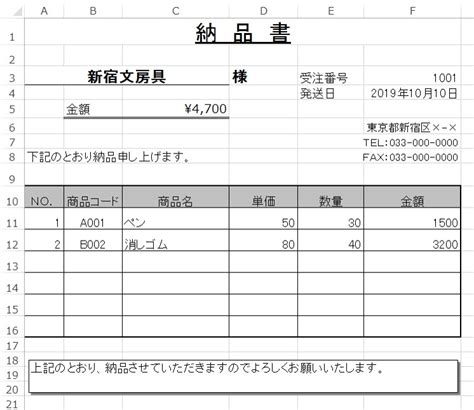 A B C D E F
1 納 品 書
2
3 新宿文房具 様 受注番号 1001
4 発送日 2019年10月10日
5 金額 ¥4,700
6 東京都新宿区×-×
7 TEL:033-000-0000
8 下記のとおり納品申し上げます。 FAX:033-000-0000
9
10 NO. 商品コード 商品名 単価 数量 金額
11 1 A001 ペン 50 30 1500
12 2 B002 消しゴム 80 40 3200
13
14
15
16
17
18
19 上記のとおり、納品させていただきますのでよろしくお願いいたします。
20
21